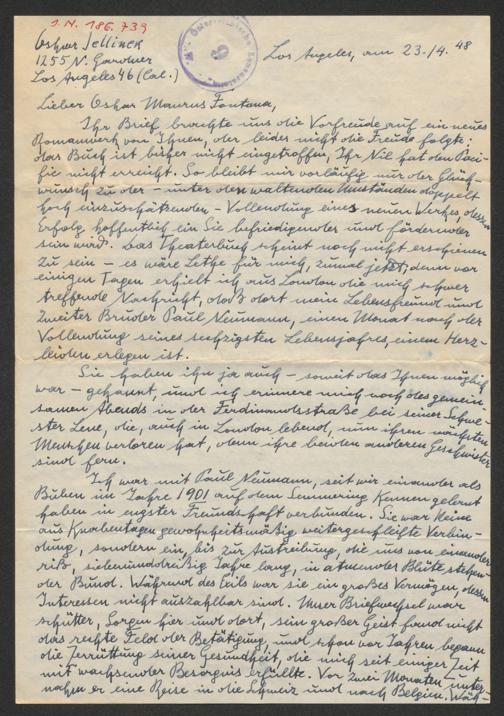 J.N. 186.739
Oskar Jellinek
1255 N. Gardner
Los Angeles 46 (Cal.)
Los Angeles, am 23./4. 48
Lieber Oskar Maurus Fontana,
Ihr Brief brachte uns die Vorfreude auf ein neues
Romanwerk von Ihnen, der leider nicht die Freude folgte:
das Buch ist bisher nicht eingetroffen, Ihr Nil hat den Paci-
fic nicht erreicht. So bleibt mir vorläufig nur der Glück-
wunsch zu der – unter den waltenden Umständen doppelt
hoch einzuschätzenden – Vollendung eines neuen Werkes, dessen
Erfolg hoffentlich ein Sie befriedigender und fördernder
sein wird. Das Theaterbuch scheint noch nicht erschienen
zu sein – es wäre Lethe für mich, zumal jetzt, denn vor
einigen Tagen erhielt ich aus London die mich schwer
treffende Nachricht, daß dort mein Lebensfreund und
zweiter Bruder Paul Neumann, einen Monat nach der
Vollendung seines sechzigsten Lebensjahres, einem Herz-
leiden erlegen ist.
Sie haben ihn ja auch – soweit das Ihnen möglich
war – gekannt, und ich erinnere mich noch des gemein-
samen Abends in der Ferdinandstraße bei seiner Schwe-
ster Lene, die, auch in London lebend, nun ihren nächsten
Menschen verloren hat, denn ihre beiden anderen Geschwister
sind fern.
Ich war mit Paul Neumann, seit wir einander als
Buben im Jahre 1901 auf dem Semmering kennen gelernt
haben in engster Freundschaft verbunden. Sie war keine
aus Knabentagen gewohnheitsmäßig weitergeschleifte Verbin-
dung, sondern ein, bis zur Austreibung, die uns von einander
riß, siebenunddreißig Jahre lang, in atmender Blüte stehen-
der Bund. Während des Exils war sie ein großes Vermögen, dessen
Interessen nicht auszahlbar sind. Unser Briefwechsel war
schütter, Sorgen hier und dort, sein großer Geist fand nicht
das rechte Feld der Betätigung, und schon vor Jahren begann
die Zerrüttung seiner Gesundheit, die mich seit einiger Zeit
mit wachsender Besorgnis erfüllte. Vor zwei Monaten unter-
nahm er eine Reise in die Schweiz und nach Belgien. Wäh-